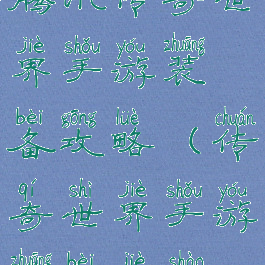 腾讯传奇世
jiè shǒu yóu zhuāng
界手游装
bèi gōng lüè chuán
备攻略（传
qí shì jiè shǒu yóu
奇世界手游
zhuāng bèi jiè shào